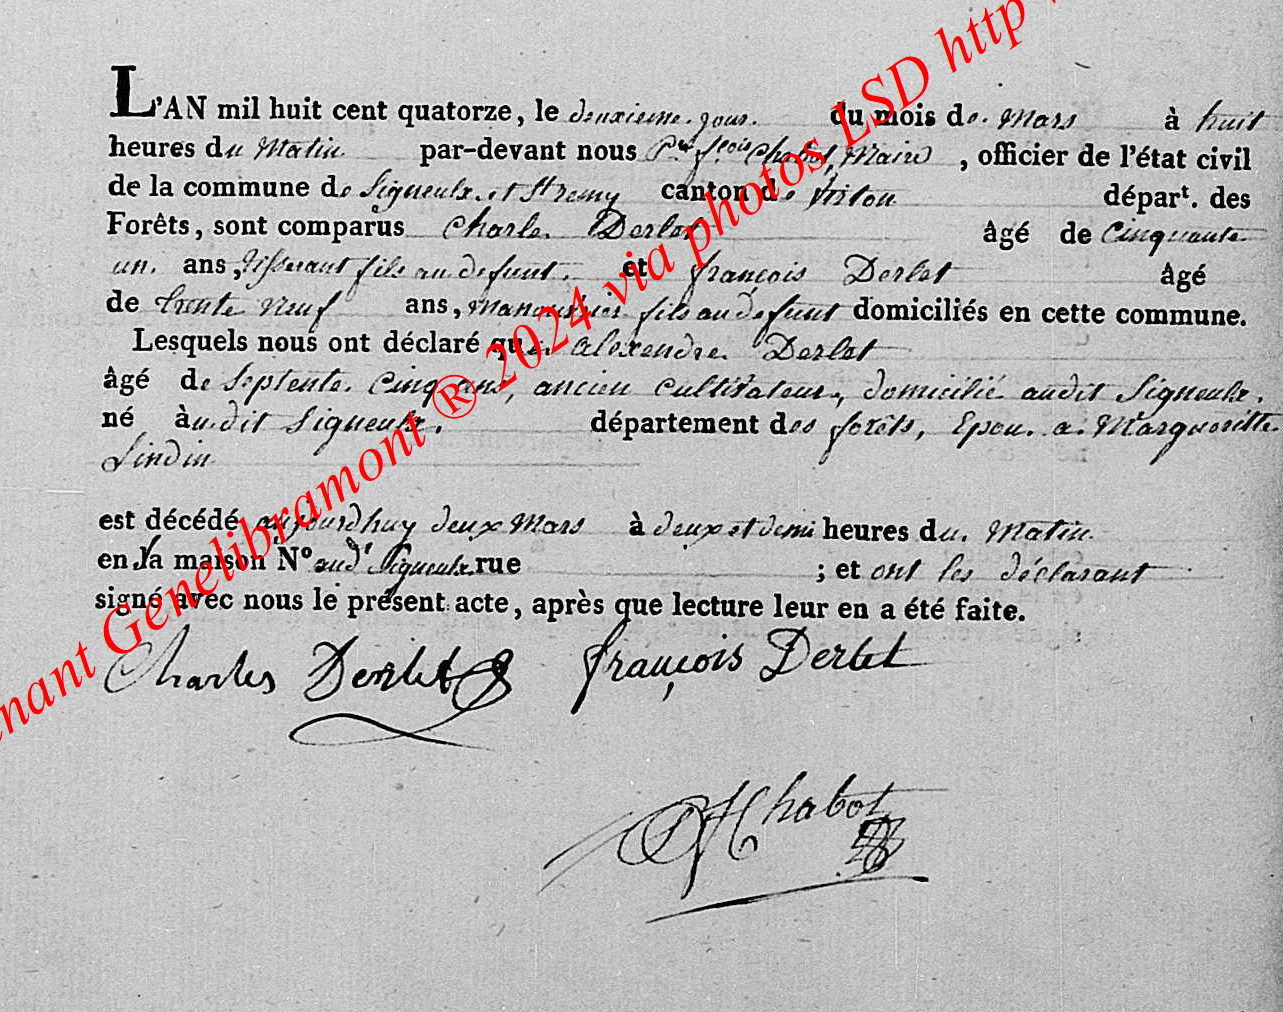 L'AN mil huit cent quatorze, le deuxieme jour du mois de Mars à huit
heures du Matin par-devant nous Pre fcois Chabot, Maire, officier de l'état civil
de la commune de Signeulx et St remy canton de Virton départ. des
Forêts, sont comparus Charle Derlet âgé de Cinquante
un ans, tisserant fils au defunt. et françois Derlet âgé
de trente neuf ans, manouvrier fils au defunt domiciliés en cette commune.
Lesquels nous ont déclaré que alexendre Derlet
âgé de Septente Cinq ans, ancien Cultivateur, domicilié audit Signeulx,
né àudit Signeulx. département des forêts, Epou a Margueritte
Lindin
est décédé aujourdhuy deux Mars à deux et demi heures du Matin
en sa maison N° aud' Signeulx rue ; et ont les déclarant
signé avec nous le présent acte, après que lecture leur en a été faite.
Charles Derlet françois Derlet
PF Chabot
nant Genelibramont ® 2024 via photos LSD http